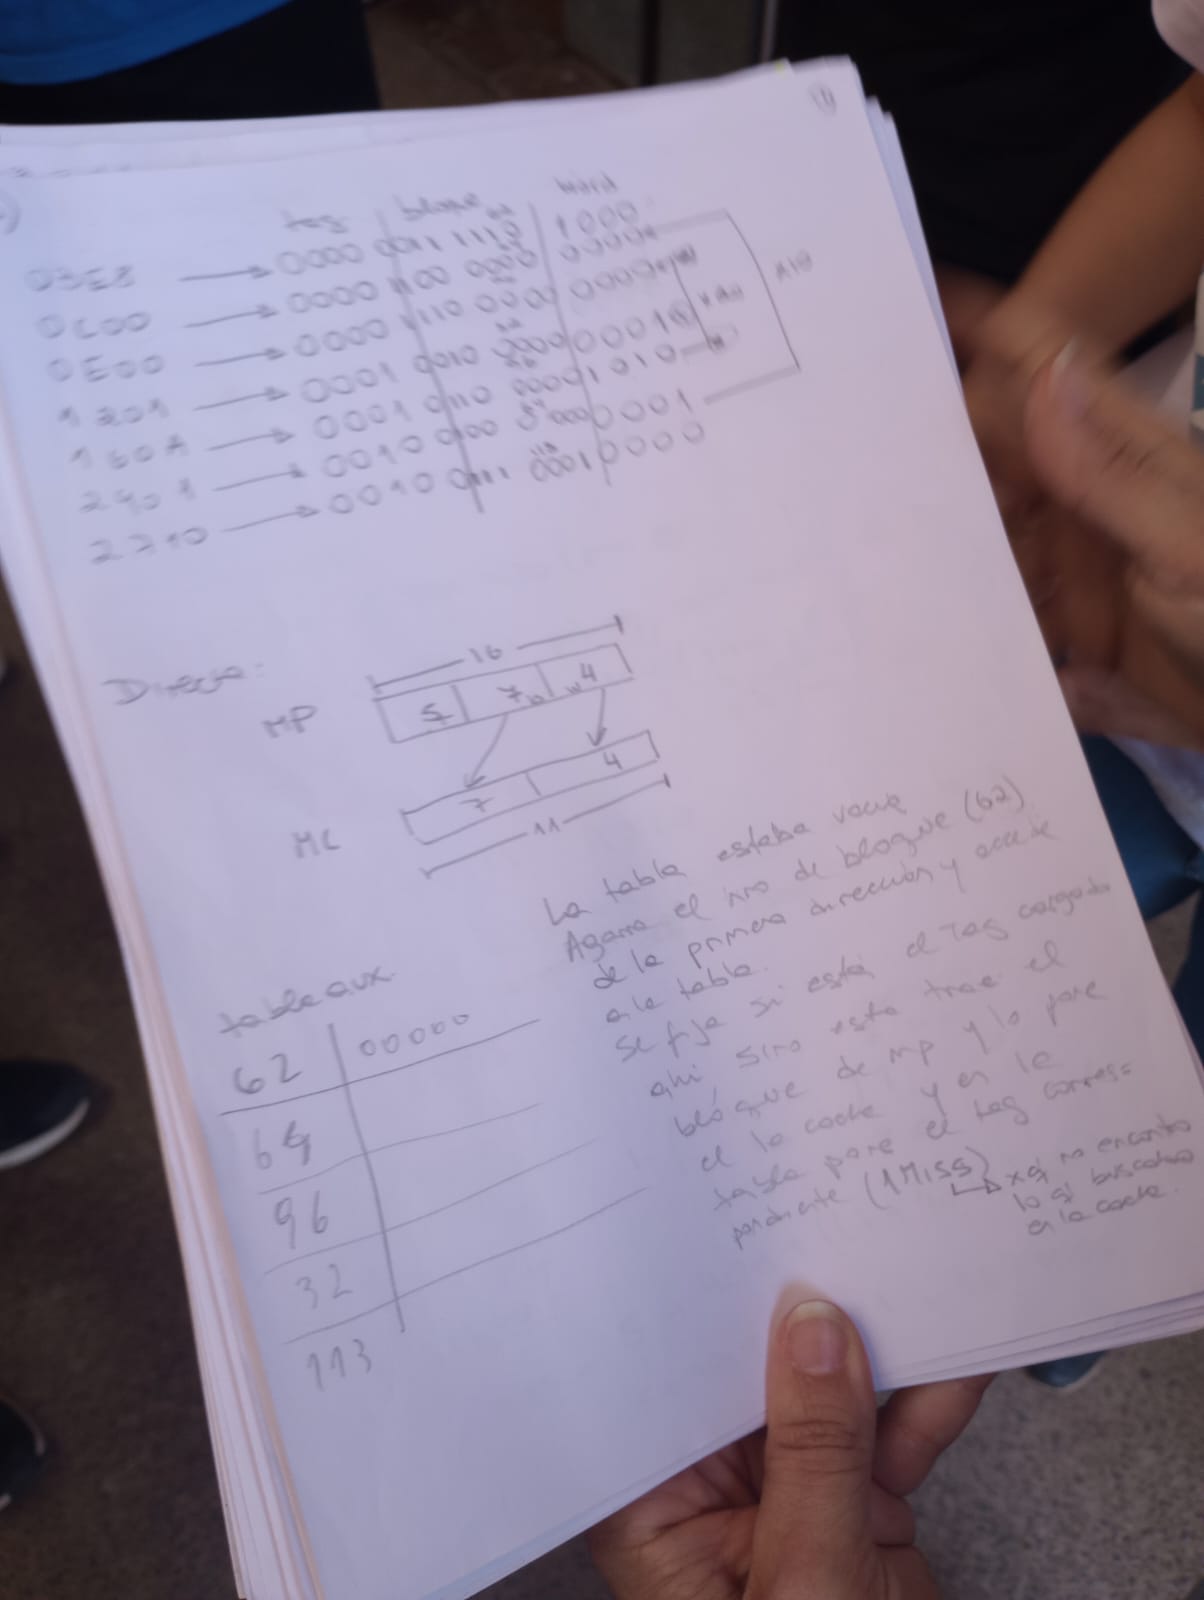 tag bloque word
03E8 → 0000 0011 1110 1000
0C00 → 0000 1100 0000 0000
0E00 → 0000 1110 0000 0000
1201 → 0001 0010 0000 0001
160A → 0001 0110 0000 1010
2401 → 0010 0100 0000 0001
2710 → 0010 0111 0001 0000
Directa:
16
MP 5 7 4
MC 7 4
11
La tabla estaba vacía
Agarra el nro de bloque (62)
de la primera dirección y accede
a la tabla.
se fija si está el Tag cargado
ahí, sino esta trae el
bloque de mp y lo pone
el la cache y en la
tabla pone el tag corres-
pondiente (1 Miss) → xq no encontro
lo q buscaba
en la cache.
tabla aux.
62 00000
64
96
32
113